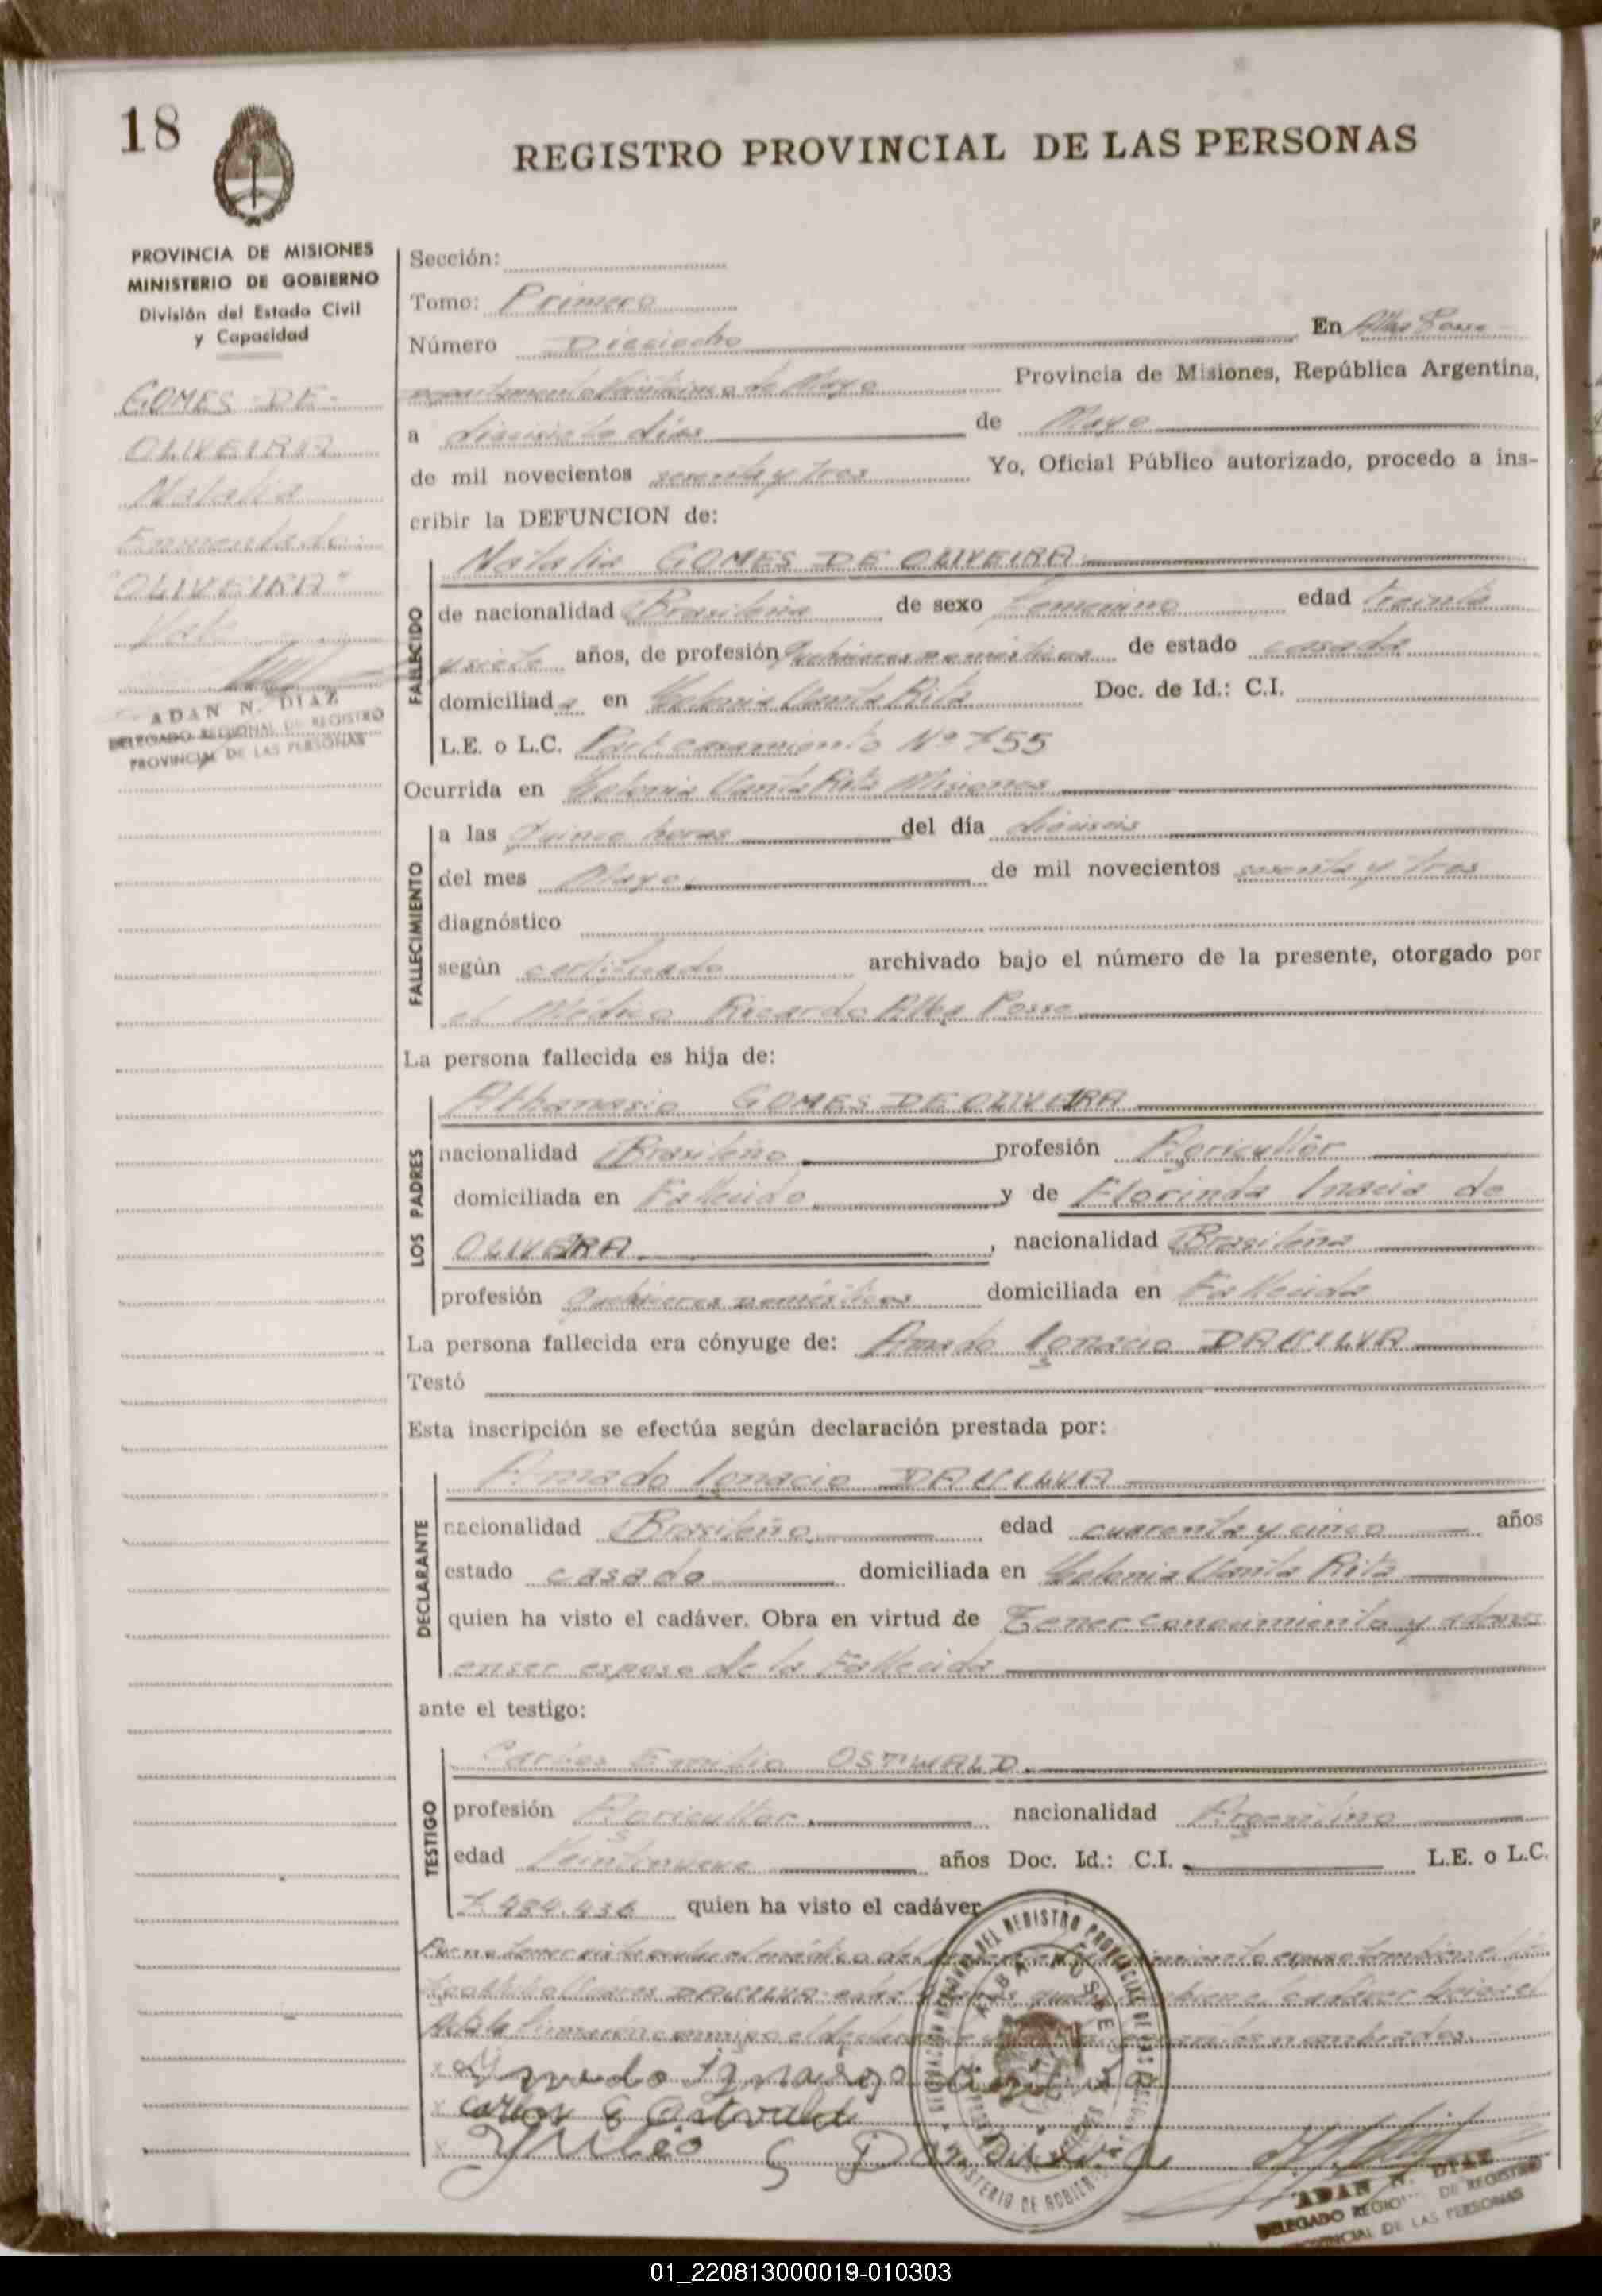 18
REGISTRO PROVINCIAL DE LAS PERSONAS
PROVINCIA DE MISIONES
MINISTERIO DE GOBIERNO
División del Estado Civil
y Capacidad
GOMES DE
OLIVEIRA
Natalia
Enmendado:
"OLIVEIRA"
Vale
ADAN N. DIAZ
DELEGADO REGIONAL DE REGISTRO
PROVINCIAL DE LAS PERSONAS
Sección:
Tomo: Primero
Número Dieciocho En Alba Posse
departamento Veinticinco de Mayo Provincia de Misiones, República Argentina,
a diecisiete días de Mayo
de mil novecientos sesenta y tres Yo, Oficial Público autorizado, procedo a ins-
cribir la DEFUNCION de:
FALLECIDO
Natalia GOMES DE OLIVEIRA
de nacionalidad Brasileña de sexo Femenino edad treinta
y siete años, de profesión Quehaceres Domésticos de estado casada
domiciliada en Colonia Santa Rita Doc. de Id.: C.I.
L.E. o L.C. Part. casamiento Nº 755
Ocurrida en Colonia Santa Rita Misiones
FALLECIMIENTO
a las Quince horas del día dieciseis
del mes Mayo de mil novecientos sesenta y tres
diagnóstico
según certificado archivado bajo el número de la presente, otorgado por
el Médico Ricardo Alba Posse
La persona fallecida es hija de:
LOS PADRES
Athanasio GOMES DE OLIVEIRA
nacionalidad Brasileño profesión Agricultor
domiciliada en Fallecido y de Florinda Inacia de
OLIVEIRA, nacionalidad Brasileña
profesión Quehaceres Domésticos domiciliada en Fallecida
La persona fallecida era cónyuge de: Amado Ignacio DA SILVA
Testó
Esta inscripción se efectúa según declaración prestada por:
DECLARANTE
Amado Ignacio DA SILVA
nacionalidad Brasileño edad cuarenta y cinco años
estado casado domiciliada en Colonia Santa Rita
quien ha visto el cadáver. Obra en virtud de Tener conocimiento y además
en ser esposo de la Fallecida
ante el testigo:
TESTIGO
Carlos Emilio OSTWALD
profesión Agricultor nacionalidad Argentino
edad Veintinueve años Doc. Id.: C.I. L.E. o L.C.
7.484.436 quien ha visto el cadáver
Por no tener visto el médico
DA SILVA cadáver
Acta la firmarán conmigo el declarante nombrados.
Carlos E Ostwald
Julio S Da Silva
ALBA POSSE
ADAN N. DIAZ
DELEGADO REGIO DE REGISTRO
PROVINCIAL DE LAS PERSONAS
01_220813000019-010303